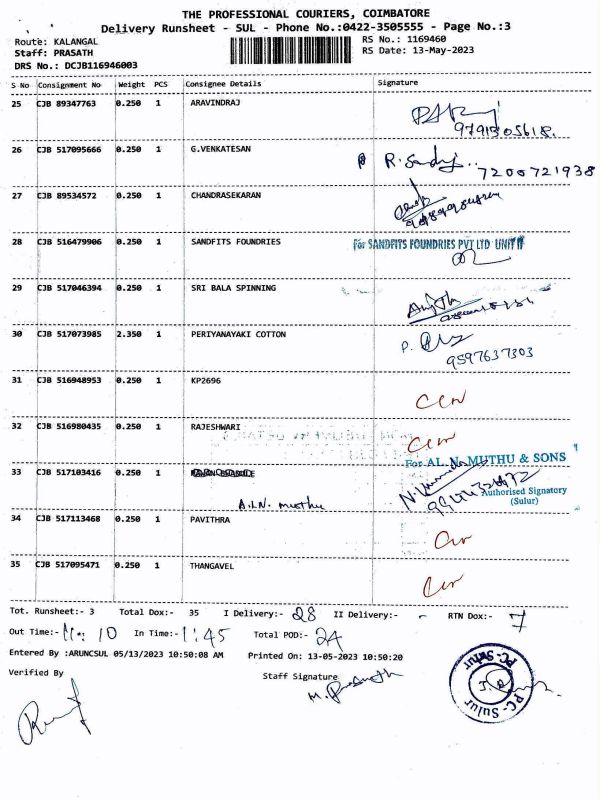 THE PROFESSIONAL COURIERS, COIMBATORE
Delivery Runsheet - SUL - Phone No.:0422-3505555 - Page No.:3
Route: KALANGAL
RS No.: 1169460
Staff: PRASATH
RS Date: 13-May-2023
DRS No.: DCJB116946003
S No Consignment No Weight PCS Consignee Details Signature
25 CJB 89347763 0.250 1 ARAVINDRAJ
26 CJB 517095666 0.250 1 G.VENKATESAN
7200721938
27 CJB 89534572 0.250 1 CHANDRASEKARAN
28 CJB 516479906 0.250 1 SANDFITS FOUNDRIES for SANDFITS FOUNDRIES PVT LTD UNIT II
29 CJB 517046394 0.250 1 SRI BALA SPINNING
30 CJB 517073985 2.350 1 PERIYANAYAKI COTTON
9597637303
31 CJB 516948953 0.250 1 KP2696
32 CJB 516980435 0.250 1 RAJESHWARI
For AL. N. MUTHU & SONS
33 CJB 517103416 0.250 1
A.L.N. muthu
Authorised Signatory
(Sulur)
34 CJB 517113468 0.250 1 PAVITHRA
35 CJB 517095471 0.250 1 THANGAVEL
Tot. Runsheet:- 3 Total Dox:- 35 I Delivery:- 28 II Delivery:- - RTN Dox:- 7
Out Time:- 11.10 In Time:- 1.45 Total POD:- 24
Entered By :ARUNCSUL 05/13/2023 10:50:08 AM Printed On: 13-05-2023 10:50:20
Verified By Staff Signature
M. Prasath
PC-Sulur
PC-Sulur